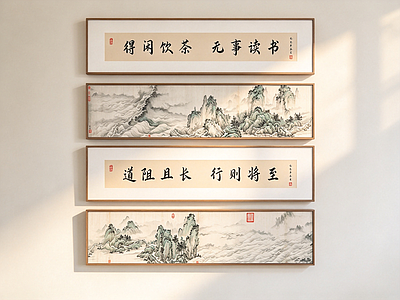 得闲饮茶 无事读书
道阻且长 行则将至